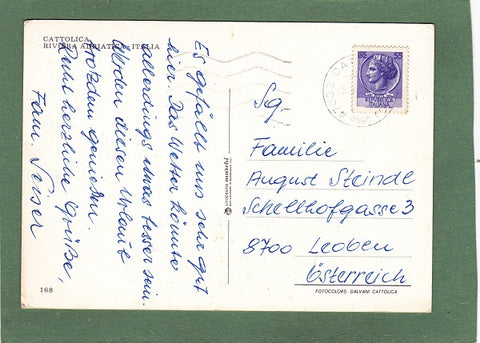 CATTOLICA
RIVIERA ADRIATICA - ITALIA
Es gefällt uns sehr gut
hier. Das Wetter könnte
allerdings etwas besser sein.
Werden diesen Urlaub
trotzdem genießen.
Recht herzliche Grüße,
Fam. Seiser
168
Sg.
Familie
August Steindl
Schellhofgasse 3
8700 Leoben
Österreich
FOTOCOLORS: GALVANI CATTOLICA
55